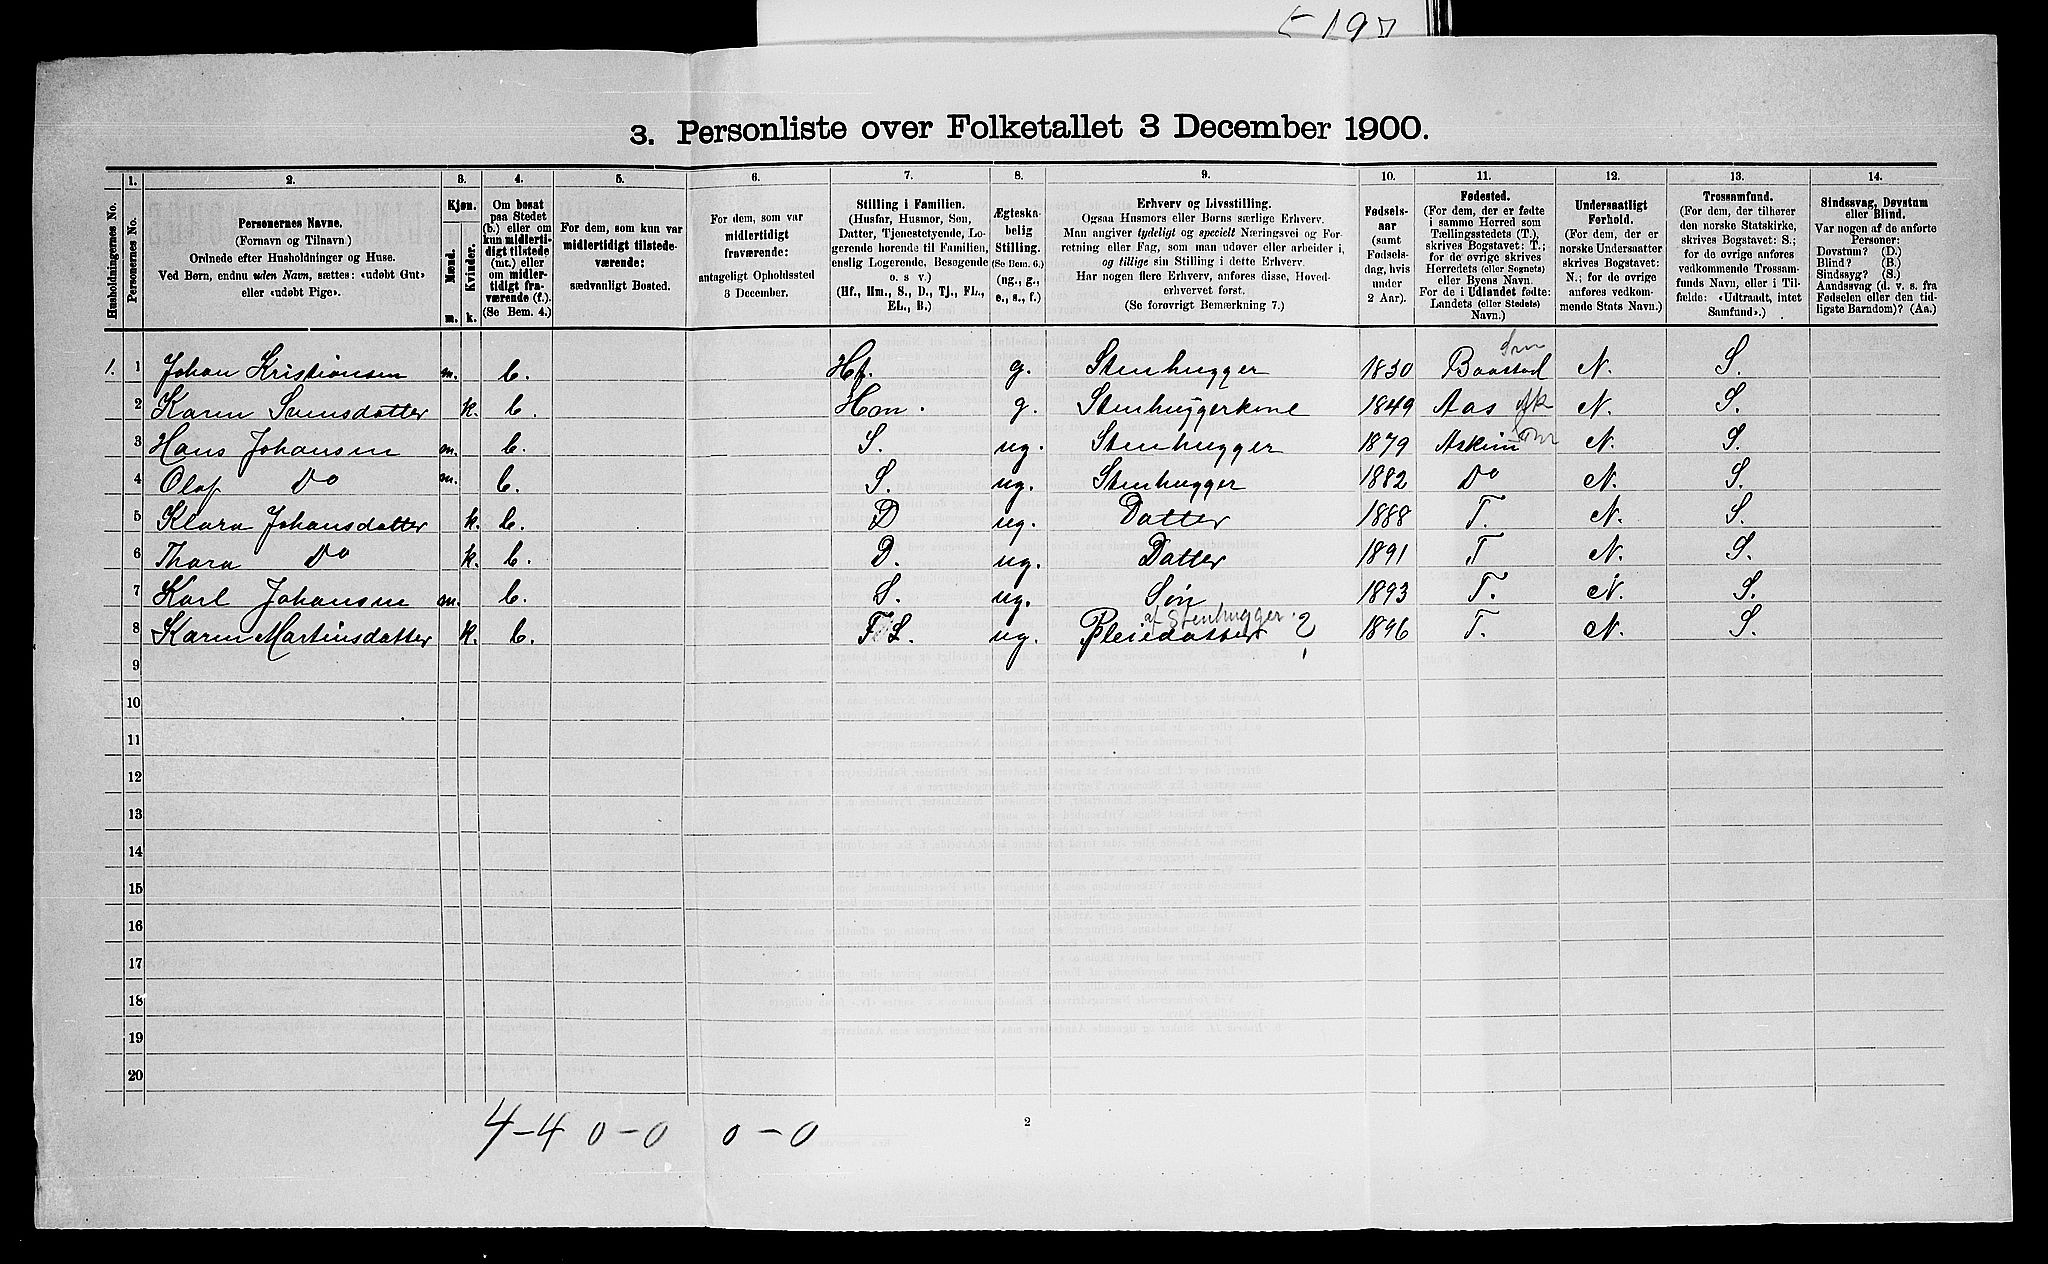 3. Personliste over Folketallet 3 December 1900.
1. 2. 3. 4. 5. 6. 7. 8. 9. 10. 11. 12. 13. 14.
Husholdningernes No.
Personernes No.
Personernes Navne.
(Fornavn og Tilnavn)
Ordnede efter Husholdninger og Huse.
Ved Børn, endnu uden Navn, sættes: «udøbt Gut»
eller «udøbt Pige».
Kjøn.
Mænd.
Kvinder.
m. k.
Om bosat
paa Stedet
(b.) eller om
kun midlerti-
digt tilstede
(mt.) eller
om midler-
tidigt fra-
værende (f.).
(Se Bem. 4.)
For dem, som kun var
midlertidigt tilstede-
værende:
sædvanligt Bosted.
For dem, som var
midlertidigt
fraværende:
antageligt Opholdssted
3 December.
Stilling i Familien.
(Husfar, Husmor, Søn,
Datter, Tjenestetyende, Lo-
gerende hørende til Familien,
enslig Logerende, Besøgende
o. s. v.)
(Hf., Hm., S., D., Tj., FL.,
EL., B.)
Ægteska-
belig
Stilling.
(Se Bem. 6.)
(ug., g.,
e., s., f.)
Erhverv og Livsstilling.
Ogsaa Husmors eller Børns særlige Erhverv.
Man angiver tydeligt og specielt Næringsvei og For-
retning eller Fag, som man udøver eller arbeider i,
og tillige sin Stilling i dette Erhverv.
Har nogen flere Erhverv, anføres disse, Hoved-
erhvervet først.
(Se forøvrigt Bemærkning 7.)
Fødsels-
aar
(samt
Fødsels-
dag, hvis
under
2 Aar).
Fødested.
(For dem, der er fødte
i samme Herred som
Tællingsstedets (T.),
skrives Bogstavet: T.;
for de øvrige skrives
Herredets (eller Sognets)
eller Byens Navn.
For de i Udlandet fødte:
Landets (eller Stedets)
Navn.)
Undersaatligt
Forhold.
(For dem, der er
norske Undersaatter
skrives Bogstavet:
N.; for de øvrige
anføres vedkom-
mende Stats Navn.)
Trossamfund.
(For dem, der tilhører
den norske Statskirke,
skrives Bogstavet: S.;
for de øvrige anføres
vedkommende Trossam-
funds Navn, eller i Til-
fælde: «Udtraadt, intet
Samfund».)
Sindssvag, Døvstum
eller Blind.
Var nogen af de anførte
Personer:
Døvstum? (D.)
Blind? (B.)
Sindssyg? (S.)
Aandssvag (d. v. s. fra
Fødselen eller den tid-
ligste Barndom)? (Aa.)
Smn
1. 1 Johan Kristiansen m. b. Hf. g. Stenhugger 1830 Baastad N. S.
2 Karen Svensdatter k. b. Hm. g. Stenhuggerkone 1849 Aas Ak N. S.
3 Hans Johansen m. b. S. ug. Stenhugger 1879 Askim N. S.
4 Olaf Do m. b. S. ug. Stenhugger 1882 Do N. S.
5 Klara Johansdatter k. b. D ug. Datter 1888 T. N. S.
6 Thora Do k. b. D. ug. Datter 1891 T N. S.
7 Karl Johansen m. b. S. ug. Søn 1893 T. N. S.
af Stenhugger.
8 Karen Martinsdatter k. b. F.L. ug. Pleiedatter ? 1896 T. N. S.
9
10
11
12
13
14
15
16
17
18
19
20
4-4 0-0 0-0
2